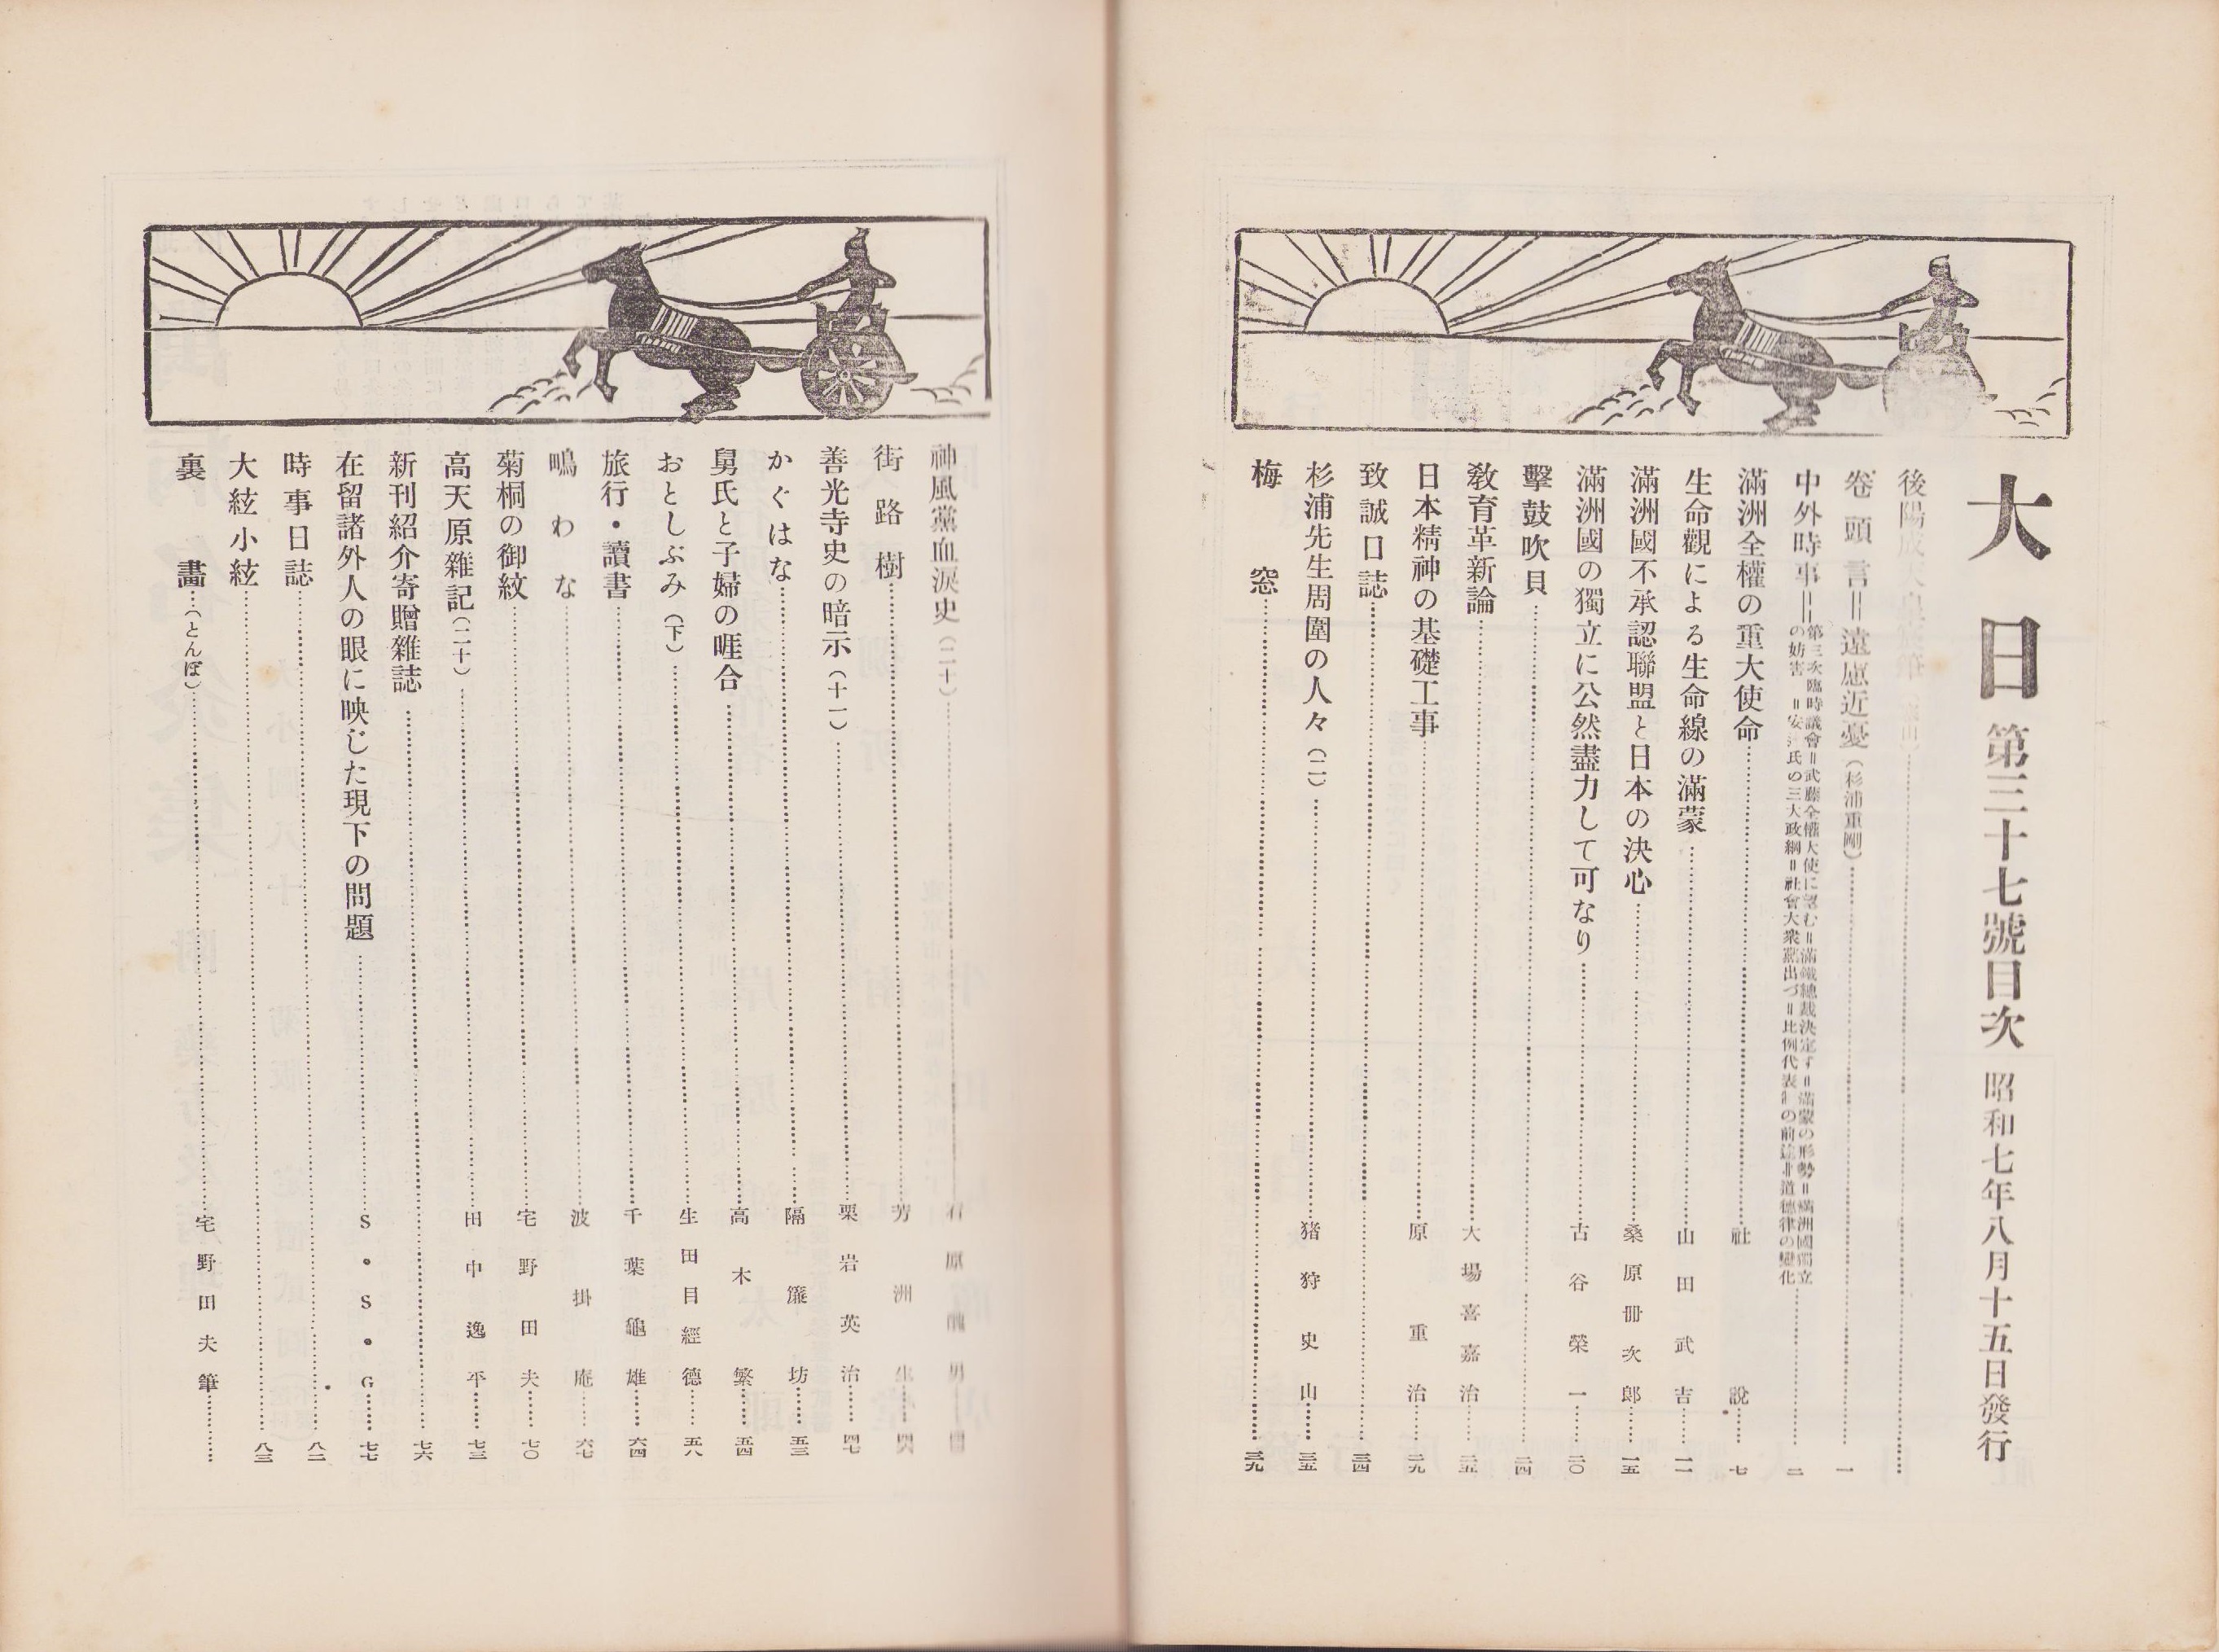 大日 第三十七號目次 昭和七年八月十五日發行
後陽成
卷頭言＝遠慮近憂（杉浦重剛）……一
中外時事＝第三次臨時議會＝武藤全權大使に望む＝滿鐵總裁決定す＝滿蒙の形勢＝滿洲國獨立
の妨害＝安 氏の三大政綱＝社會大衆黨出づ＝比例代表制の前途＝道德律の變化……二
滿洲全權の重大使命……社說……七
生命觀による生命線の滿蒙……山田武吉……一一
滿洲國不承認聯盟と日本の決心……桑原冊次郎……一五
滿洲國の獨立に公然盡力して可なり……古谷榮一……二〇
擊鼓吹貝……二四
敎育革新論……大場喜嘉治……二五
日本精神の基礎工事……原重治……二九
致誠日誌……三四
杉浦先生周圍の人々（二）……猪狩史山……三五
梅窓……三九
神風黨血淚史（二十）……石原醜男
街路樹……芳洲生
善光寺史の暗示（十一）……栗岩英治……四七
かぐはな……隔簾坊……五三
舅氏と子婦の啀合……高木繁……五四
おとしぶみ（下）……生田目經德……五八
旅行・讀書……千葉龜雄……六四
鴫わな……波掛庵……六七
菊桐の御紋……宅野田夫……七〇
高天原雜記（二十）……田中逸平……七三
新刊紹介寄贈雜誌……七六
在留諸外人の眼に映じた現下の問題……S・S・G……七七
時事日誌……八二
大絃小絃……八三
裏畫…（とんぼ）……宅野田夫筆……